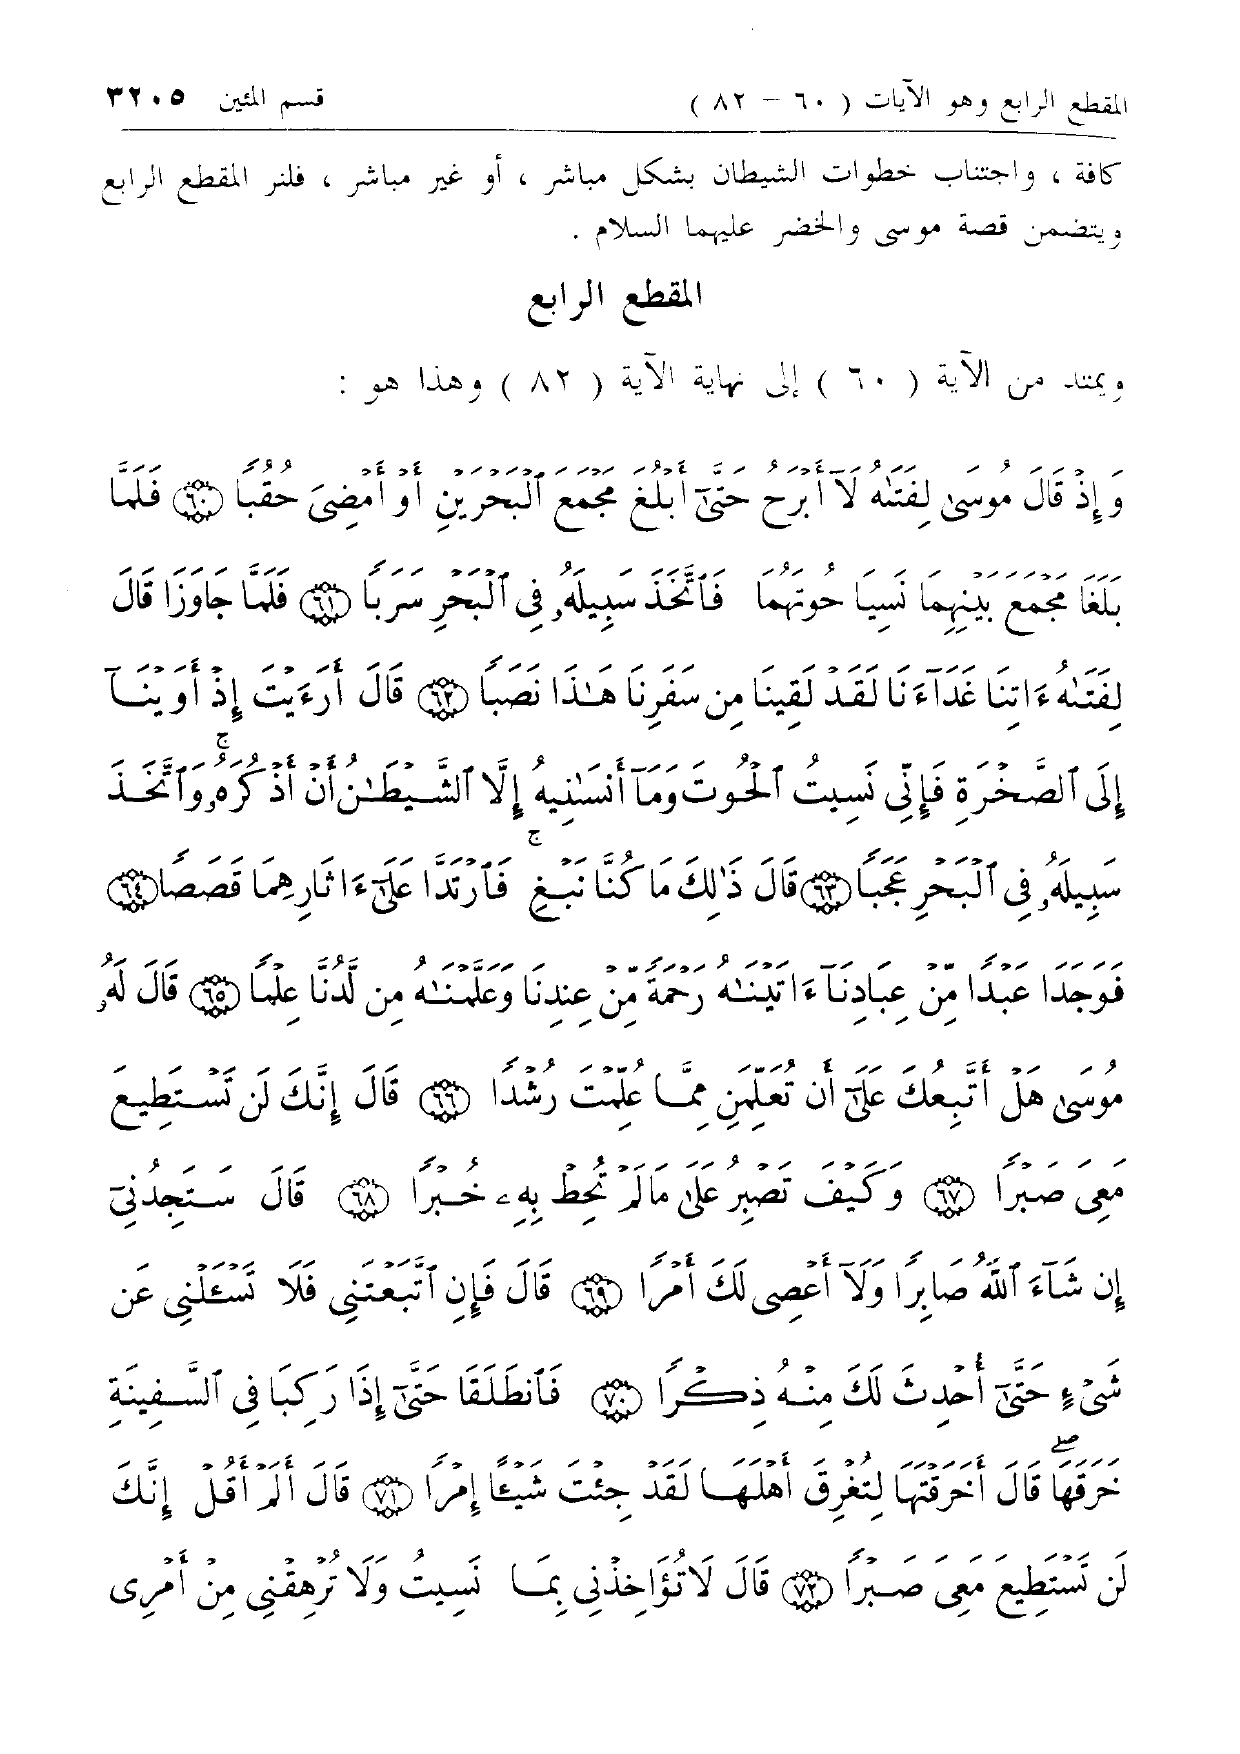 المقطع الرابع وهو الآيات ( ٦٠ – ٨٢ ) قسم المئين ٣٢٠٥
كافة ، واجتناب خطوات الشيطان بشكل مباشر ، أو غير مباشر ، فلنر المقطع الرابع
ويتضمن قصة موسى والخضر عليهما السلام .
المقطع الرابع
ويمتد من الآية ( ٦٠ ) إلى نهاية الآية ( ٨٢ ) وهذا هو :
وَإِذْ قَالَ مُوسَىٰ لِفَتَىٰهُ لَآ أَبْرَحُ حَتَّىٰٓ أَبْلُغَ مَجْمَعَ ٱلْبَحْرَيْنِ أَوْ أَمْضِىَ حُقُبًا ﴿٦٠﴾ فَلَمَّا
بَلَغَا مَجْمَعَ بَيْنِهِمَا نَسِيَا حُوتَهُمَا فَٱتَّخَذَ سَبِيلَهُۥ فِى ٱلْبَحْرِ سَرَبًا ﴿٦١﴾ فَلَمَّا جَاوَزَا قَالَ
لِفَتَىٰهُ ءَاتِنَا غَدَآءَنَا لَقَدْ لَقِينَا مِن سَفَرِنَا هَـٰذَا نَصَبًا ﴿٦٢﴾ قَالَ أَرَءَيْتَ إِذْ أَوَيْنَآ
إِلَى ٱلصَّخْرَةِ فَإِنِّى نَسِيتُ ٱلْحُوتَ وَمَآ أَنسَىٰنِيهُ إِلَّا ٱلشَّيْطَـٰنُ أَنْ أَذْكُرَهُۥ ۚ وَٱتَّخَذَ
سَبِيلَهُۥ فِى ٱلْبَحْرِ عَجَبًا ﴿٦٣﴾ قَالَ ذَٰلِكَ مَا كُنَّا نَبْغِ ۚ فَٱرْتَدَّا عَلَىٰٓ ءَاثَارِهِمَا قَصَصًا ﴿٦٤﴾
فَوَجَدَا عَبْدًا مِّنْ عِبَادِنَآ ءَاتَيْنَـٰهُ رَحْمَةً مِّنْ عِندِنَا وَعَلَّمْنَـٰهُ مِن لَّدُنَّا عِلْمًا ﴿٦٥﴾ قَالَ لَهُۥ
مُوسَىٰ هَلْ أَتَّبِعُكَ عَلَىٰٓ أَن تُعَلِّمَنِ مِمَّا عُلِّمْتَ رُشْدًا ﴿٦٦﴾ قَالَ إِنَّكَ لَن تَسْتَطِيعَ
مَعِىَ صَبْرًا ﴿٦٧﴾ وَكَيْفَ تَصْبِرُ عَلَىٰ مَا لَمْ تُحِطْ بِهِۦ خُبْرًا ﴿٦٨﴾ قَالَ سَتَجِدُنِىٓ
إِن شَآءَ ٱللَّهُ صَابِرًا وَلَآ أَعْصِى لَكَ أَمْرًا ﴿٦٩﴾ قَالَ فَإِنِ ٱتَّبَعْتَنِى فَلَا تَسْـَٔلْنِى عَن
شَىْءٍ حَتَّىٰٓ أُحْدِثَ لَكَ مِنْهُ ذِكْرًا ﴿٧٠﴾ فَٱنطَلَقَا حَتَّىٰٓ إِذَا رَكِبَا فِى ٱلسَّفِينَةِ
خَرَقَهَا ۖ قَالَ أَخَرَقْتَهَا لِتُغْرِقَ أَهْلَهَا لَقَدْ جِئْتَ شَيْـًٔا إِمْرًا ﴿٧١﴾ قَالَ أَلَمْ أَقُلْ إِنَّكَ
لَن تَسْتَطِيعَ مَعِىَ صَبْرًا ﴿٧٢﴾ قَالَ لَا تُؤَاخِذْنِى بِمَا نَسِيتُ وَلَا تُرْهِقْنِى مِنْ أَمْرِى